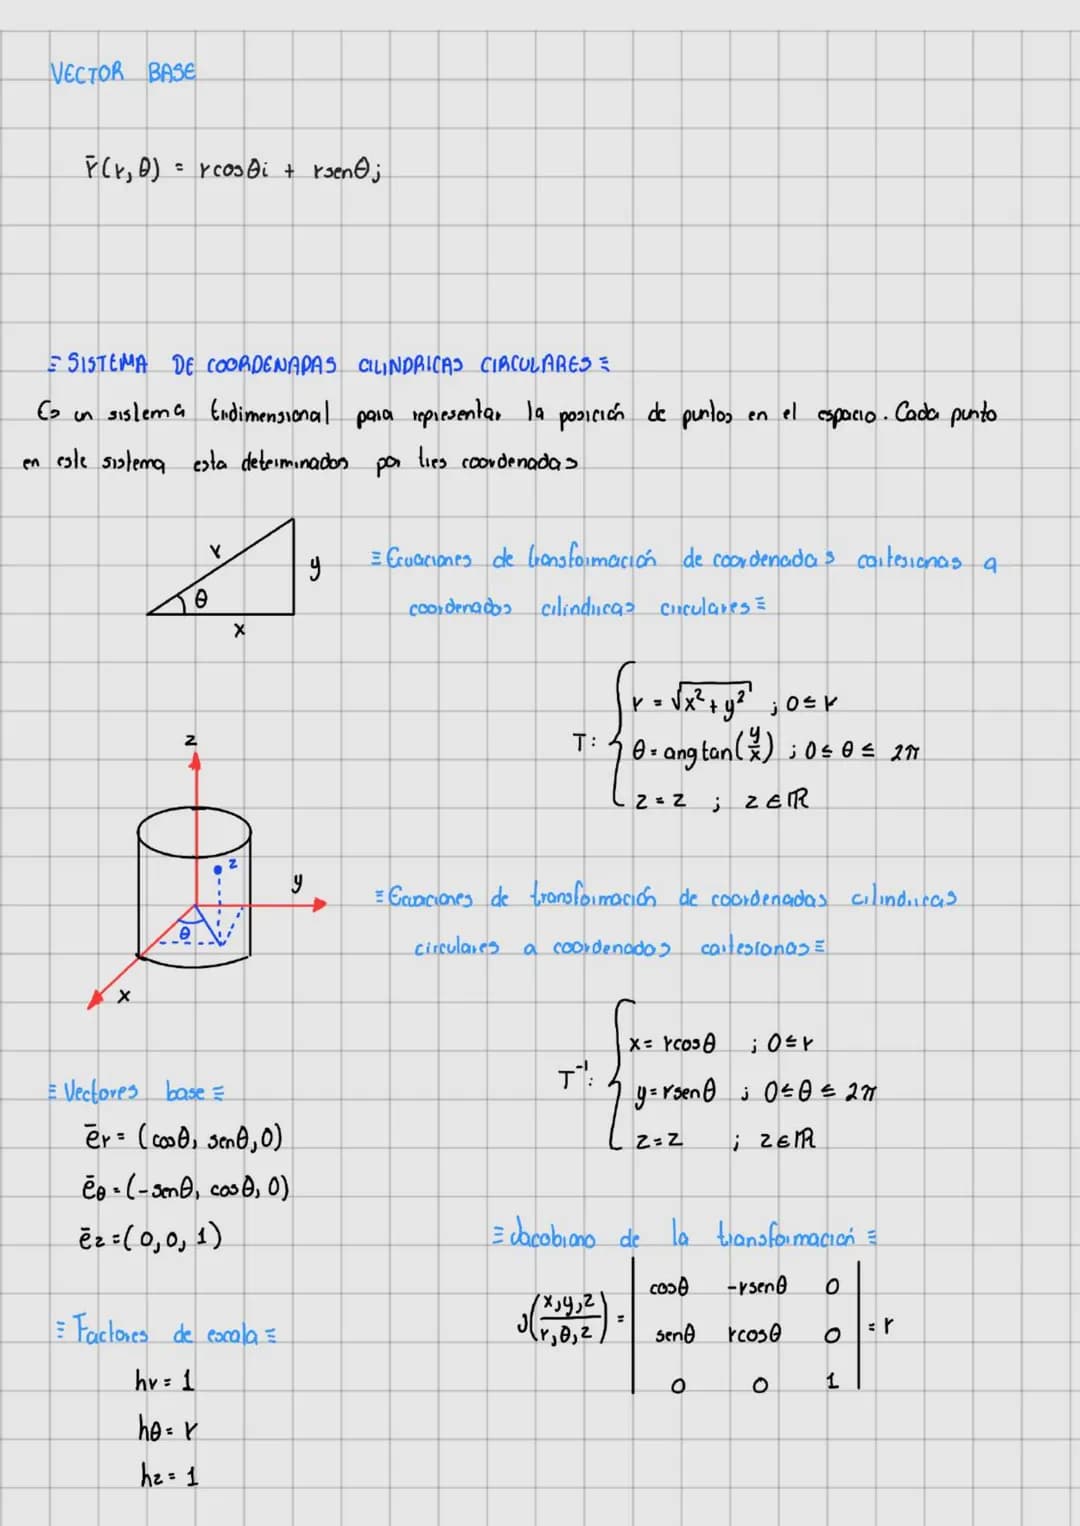 VECTOR BASE
r̄(r, θ) = rcosθi + rsenθj
≡ SISTEMA DE COORDENADAS CILINDRICAS CIRCULARES ≡
Es un sistema tridimensional para representar la posición de puntos en el espacio. Cada punto
en este sistema esta determinados por tres coordenadas
r
y
θ
x
≡ Ecuaciones de transformación de coordenadas cartesianas a
coordenadas cilindricas circulares ≡
T: { r = √(x² + y²) ; 0 ≤ r
θ = ang tan(y/x) ; 0 ≤ θ ≤ 2π
z = z ; z ∈ ℝ
z
z
y
θ
x
≡ Ecuaciones de transformación de coordenadas cilindricas
circulares a coordenadas cartesianas ≡
T⁻¹: { x = rcosθ ; 0 ≤ r
y = rsenθ ; 0 ≤ θ ≤ 2π
z = z ; z ∈ ℝ
≡ Vectores base ≡
ēr = (cosθ, senθ, 0)
ēθ = (-senθ, cosθ, 0)
ēz = (0, 0, 1)
≡ Factores de escala ≡
hr = 1
hθ = r
hz = 1
≡ Jacobiano de la transformación ≡
J(x,y,z / r,θ,z) = | cosθ -rsenθ 0 |
| senθ rcosθ 0 | = r
| 0 0 1 |